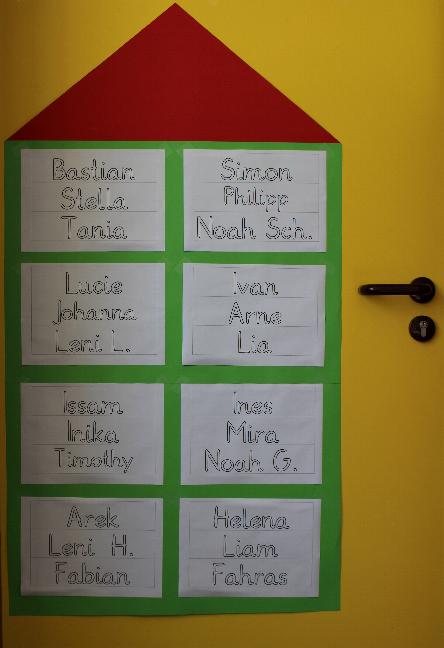 Bastian
Stella
Tania
Simon
Philipp
Noah Sch.
Lucie
Johanna
Leni L.
Ivan
Arne
Lia
Issam
Inika
Timothy
Ines
Mira
Noah G.
Arek
Leni H.
Fabian
Helena
Liam
Fahras